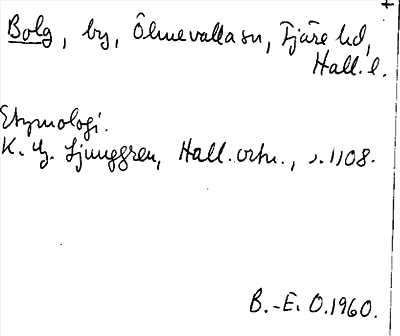 Bolg, by, Ölmevalla sn, Fjäre hd,
Hall. l.
Etymologi.
K. G. Ljunggren, Hall. ortn., s. 108.
B.-E. O. 1960.